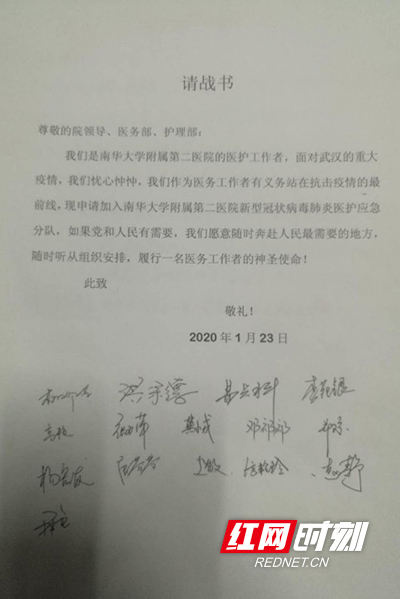 请战书
尊敬的院领导、医务部、护理部：
我们是南华大学附属第二医院的医护工作者，面对武汉的重大
疫情，我们忧心忡忡，我们作为医务工作者有义务站在抗击疫情的最
前线，现申请加入南华大学附属第二医院新型冠状病毒肺炎医护应急
分队，如果党和人民有需要，我们愿意随时奔赴人民最需要的地方，
随时听从组织安排，履行一名医务工作者的神圣使命！
此致
敬礼！
2020年1月23日
邓祁祁
红网时刻
REDNET.CN